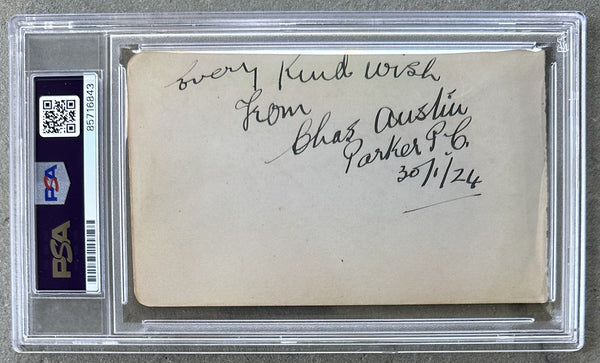 Every Kind Wish
from
Chas Austin
Parker P.C.
30/1/24
85716843
PSA
PSA